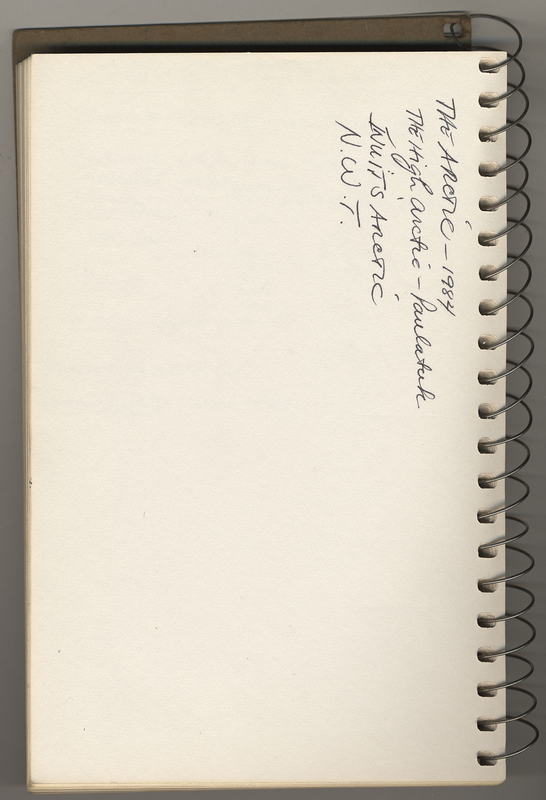 THE ARCTIC - 1984
THE HIGH ARCTIC - Paulatuk
INUITS ARCTIC
N.W.T.